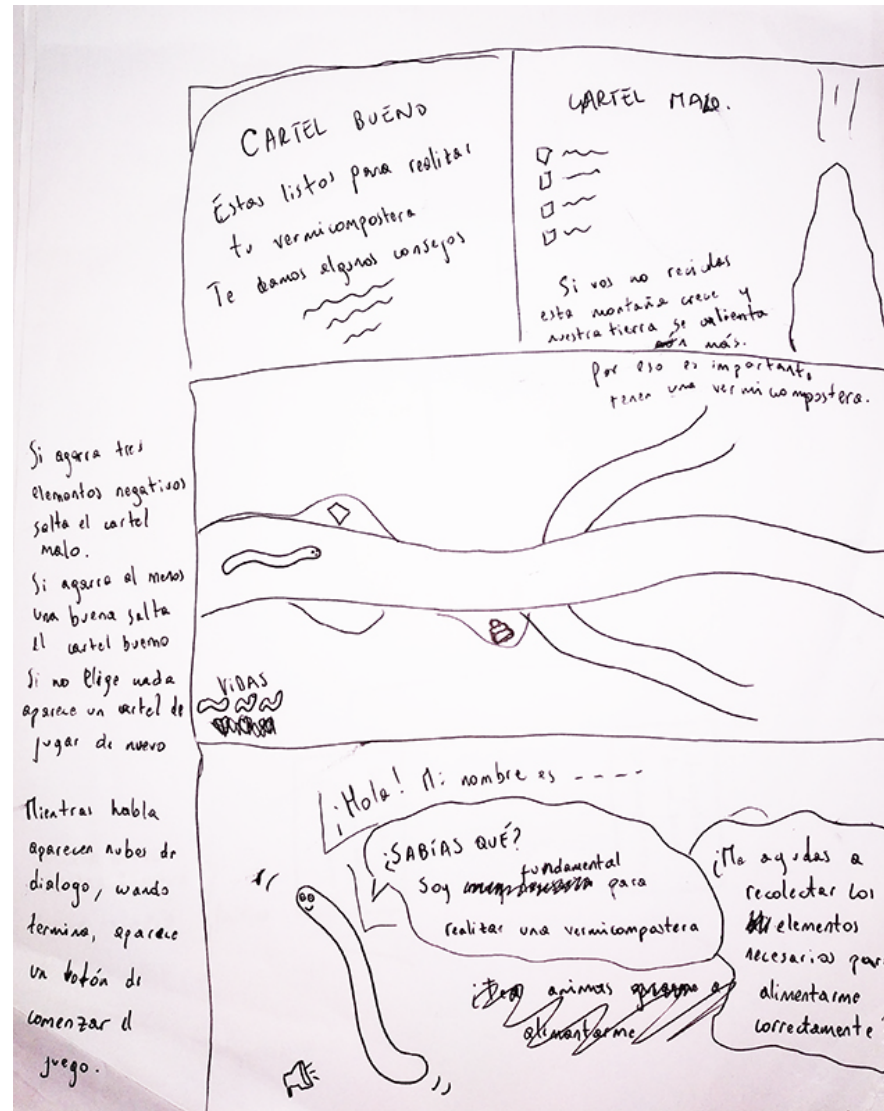 CARTEL BUENO
Estas listos para realizar
tu vermicompostera
Te damos algunos consejos
CARTEL MALO.
Si vos no reciclas
esta montaña crece y
nuestra tierra se calienta
aún más.
Por eso es importante
tener una vermicompostera.
Si agarra tres
elementos negativos
salta el cartel
malo.
Si agarra al menos
una buena salta
el cartel bueno
Si no elige nada
aparece un cartel de
jugar de nuevo
VIDAS
Mientras habla
aparecen nubes de
dialogo, cuando
termina, aparece
un botón de
comenzar el
juego.
¡Hola! Mi nombre es ----
¿SABÍAS QUÉ?
Soy fundamental para
realizar una vermicompostera
¿Me ayudas a
recolectar los
elementos
necesarios para
alimentarme
correctamente?
animas
alimentarme